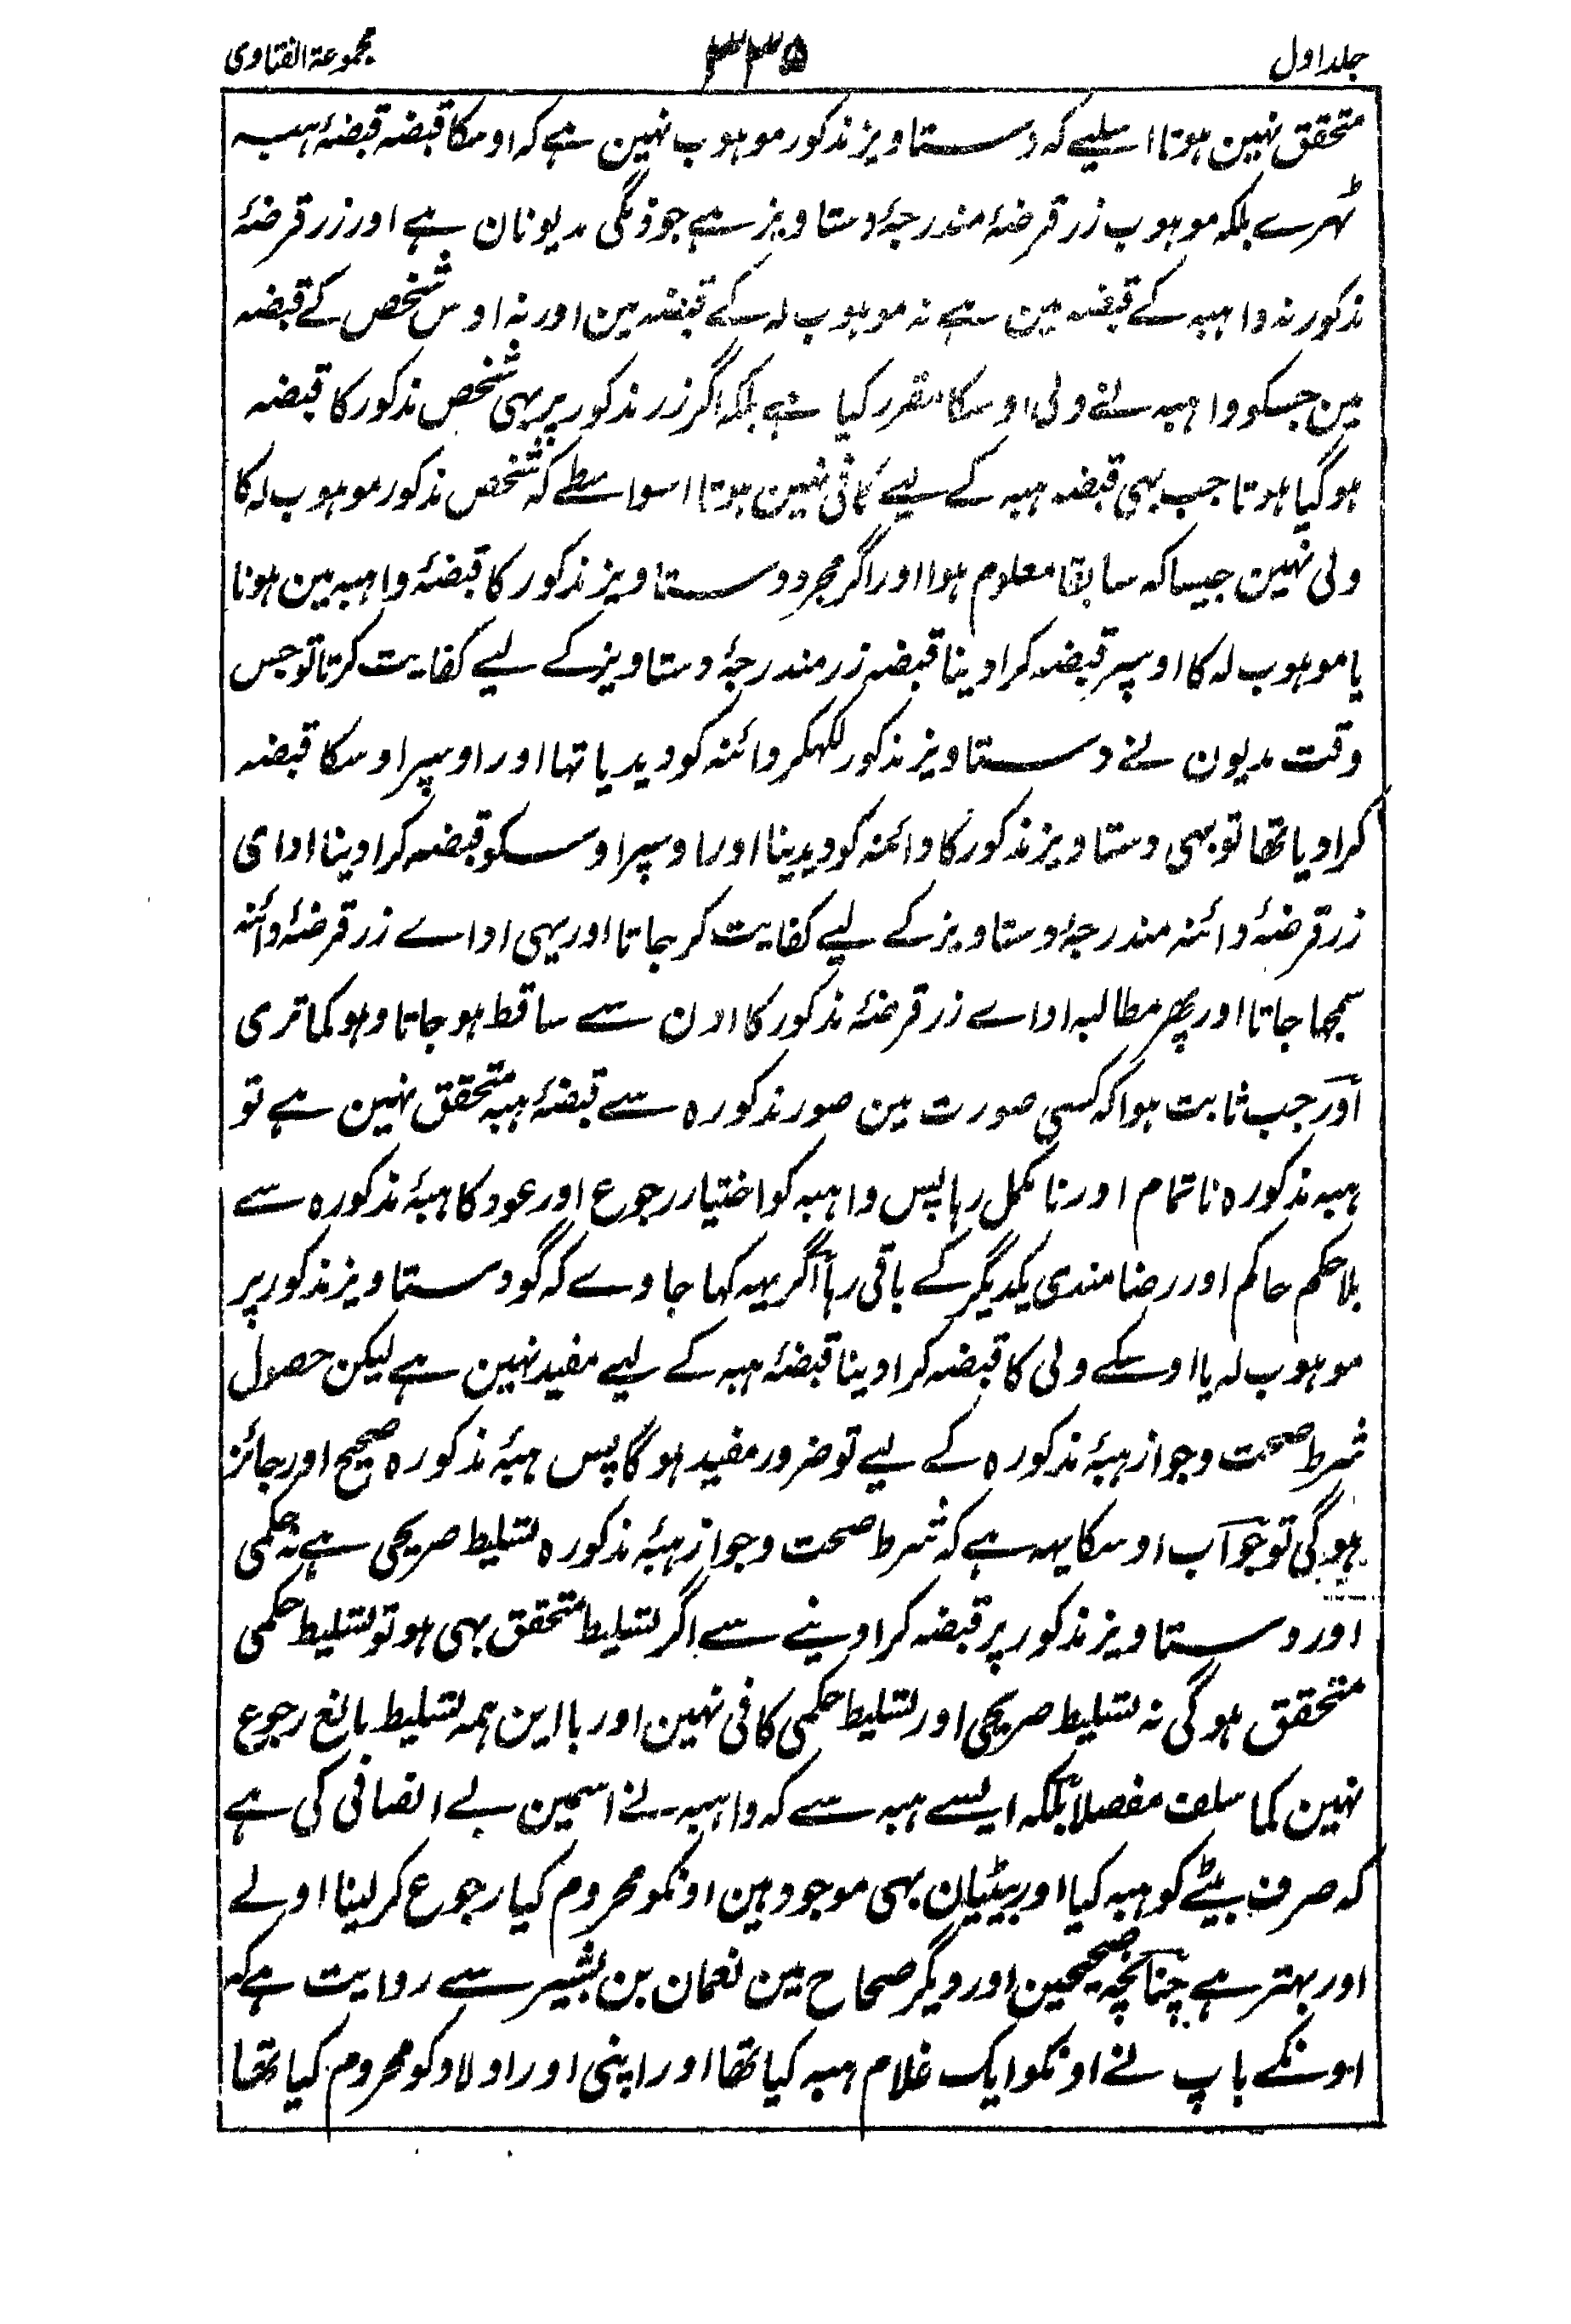 جلد اول ۳۳۵ مجموعۃ الفتاوی
متحقق نہین ہوتا اسلیے کہ دستاویز مذکور موہوب نہین ہے کہ اوسکا قبضہ قبضۂ ہبہ
ٹہرے بلکہ موہوب زر قرضۂ مندرجۂ دستاویز ہے جو ذمگی مدیونان ہے اور زر قرضۂ
مذکور نہ واہبہ کے قبضہ مین ہے نہ موہوب لہ کے قبضہ مین اور نہ اوس شخص کے قبضہ
مین جسکو واہبہ نے ولی اوسکا مقرر کیا ہے بلکہ اگر زر مذکور پر بہی شخص مذکور کا قبضہ
ہوگیا ہوتا جب بہی قبضہ ہبہ کے لیے کافی نہین ہوتا اسواسطے کہ شخص مذکور موہوب لہ کا
ولی نہین جیسا کہ سابقا معلوم ہوا اور اگر مجرد دستاویز مذکور کا قبضۂ واہبہ مین ہونا
یا موہوب لہ کا اوسپر قبضہ کرا دینا قبضہ زر مندرجۂ دستاویز کے لیے کفایت کرتا تو جس
وقت مدیون نے دستاویز مذکور لکہکر دائنہ کو دیدیا تہا اور اوسپر اوسکا قبضہ
کرا دیا تھا تو بہی دستاویز مذکور کا دائنہ کو دیدینا اور اوسپر اوسکو قبضہ کرا دینا اداى
زر قرضۂ دائنہ مندرجۂ دستاویز کے لیے کفایت کر جاتا اور یہی اداے زر قرضۂ دائنہ
سمجھا جاتا اور پھر مطالبہ اداے زر قرضۂ مذکور کا اون سے ساقط ہو جاتا وہو کما تری
اور جب ثابت ہوا کہ کسی صورت مین صور مذکورہ سے قبضۂ ہبہ متحقق نہین ہے تو
ہبہ مذکورہ ناتمام اور نامکمل رہا پس واہبہ کو اختیار رجوع اور عود کا ہبۂ مذکورہ سے
بلا حکم حاکم اور رضامندی یکدیگر کے باقی رہا اگر یہہ کہا جاوے کہ گو دستاویز مذکور پر
موہوب لہ یا اوسکے ولی کا قبضہ کرا دینا قبضۂ ہبہ کے لیے مفید نہین ہے لیکن حصول
شرط صحت وجواز ہبۂ مذکورہ کے لیے تو ضرور مفید ہوگا پس ہبۂ مذکورہ صحیح اور جائز
ہوگی تو جواب اوسکا یہہ ہے کہ شرط صحت وجواز ہبۂ مذکورہ تسلیط صریحی ہے نہ حکمی
اور دستاویز مذکور پر قبضہ کرا دینے سے اگر تسلیط متحقق بہی ہو تو تسلیط حکمی
متحقق ہوگی نہ تسلیط صریحی اور تسلیط حکمی کافی نہین اور با این ہمہ تسلیط مانع رجوع
نہین کما سلف مفصلا بلکہ ایسے ہبہ سے کہ واہبہ نے اسمین بے انصافی کی ہے
کہ صرف بیٹے کو ہبہ کیا اور بیٹیان بہی موجود ہین اونکو محروم کیا رجوع کر لینا اولے
اور بہتر ہے چنانچہ صحیحین اور دیگر صحاح مین نعمان بن بشیر سے روایت ہے کہ
اونکے باپ نے اونکو ایک غلام ہبہ کیا تھا اور اپنی اور اولاد کو محروم کیا تھا